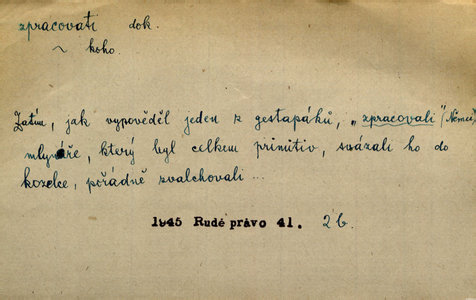 zpracovati dok.
~ koho.
Zatím, jak vypověděl jeden z gestapáků, „zpracovali" (Němci)
mlynáře, který byl celkem primitiv, svázali ho do
kozelce, pořádně zvalchovali ...
1945 Rudé právo 41. 2b.